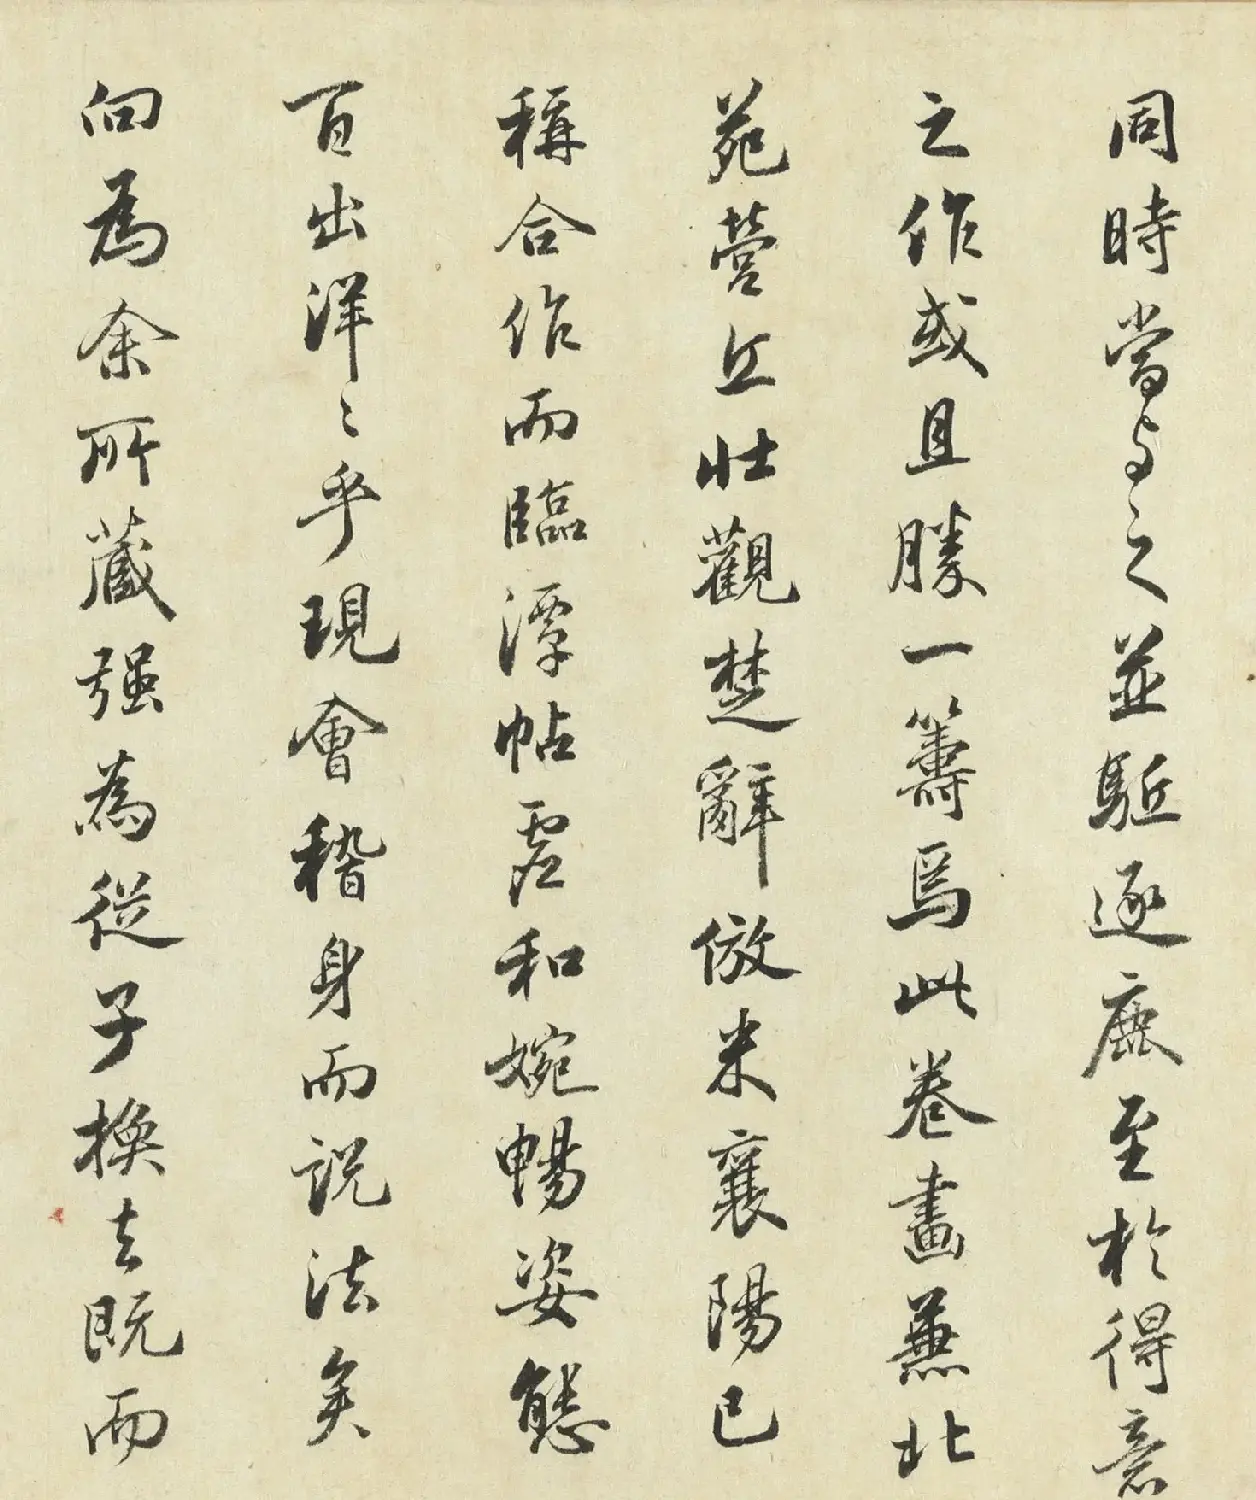 同時當與之並駈逐鹿至於得意
之作或且勝一籌焉此卷畫兼北
苑營丘壯觀楚辭倣米襄陽已
稱合作而臨潭帖虛和婉暢姿態
百出洋〻乎現會稽身而說法矣
向為余所藏強為從子換去既而